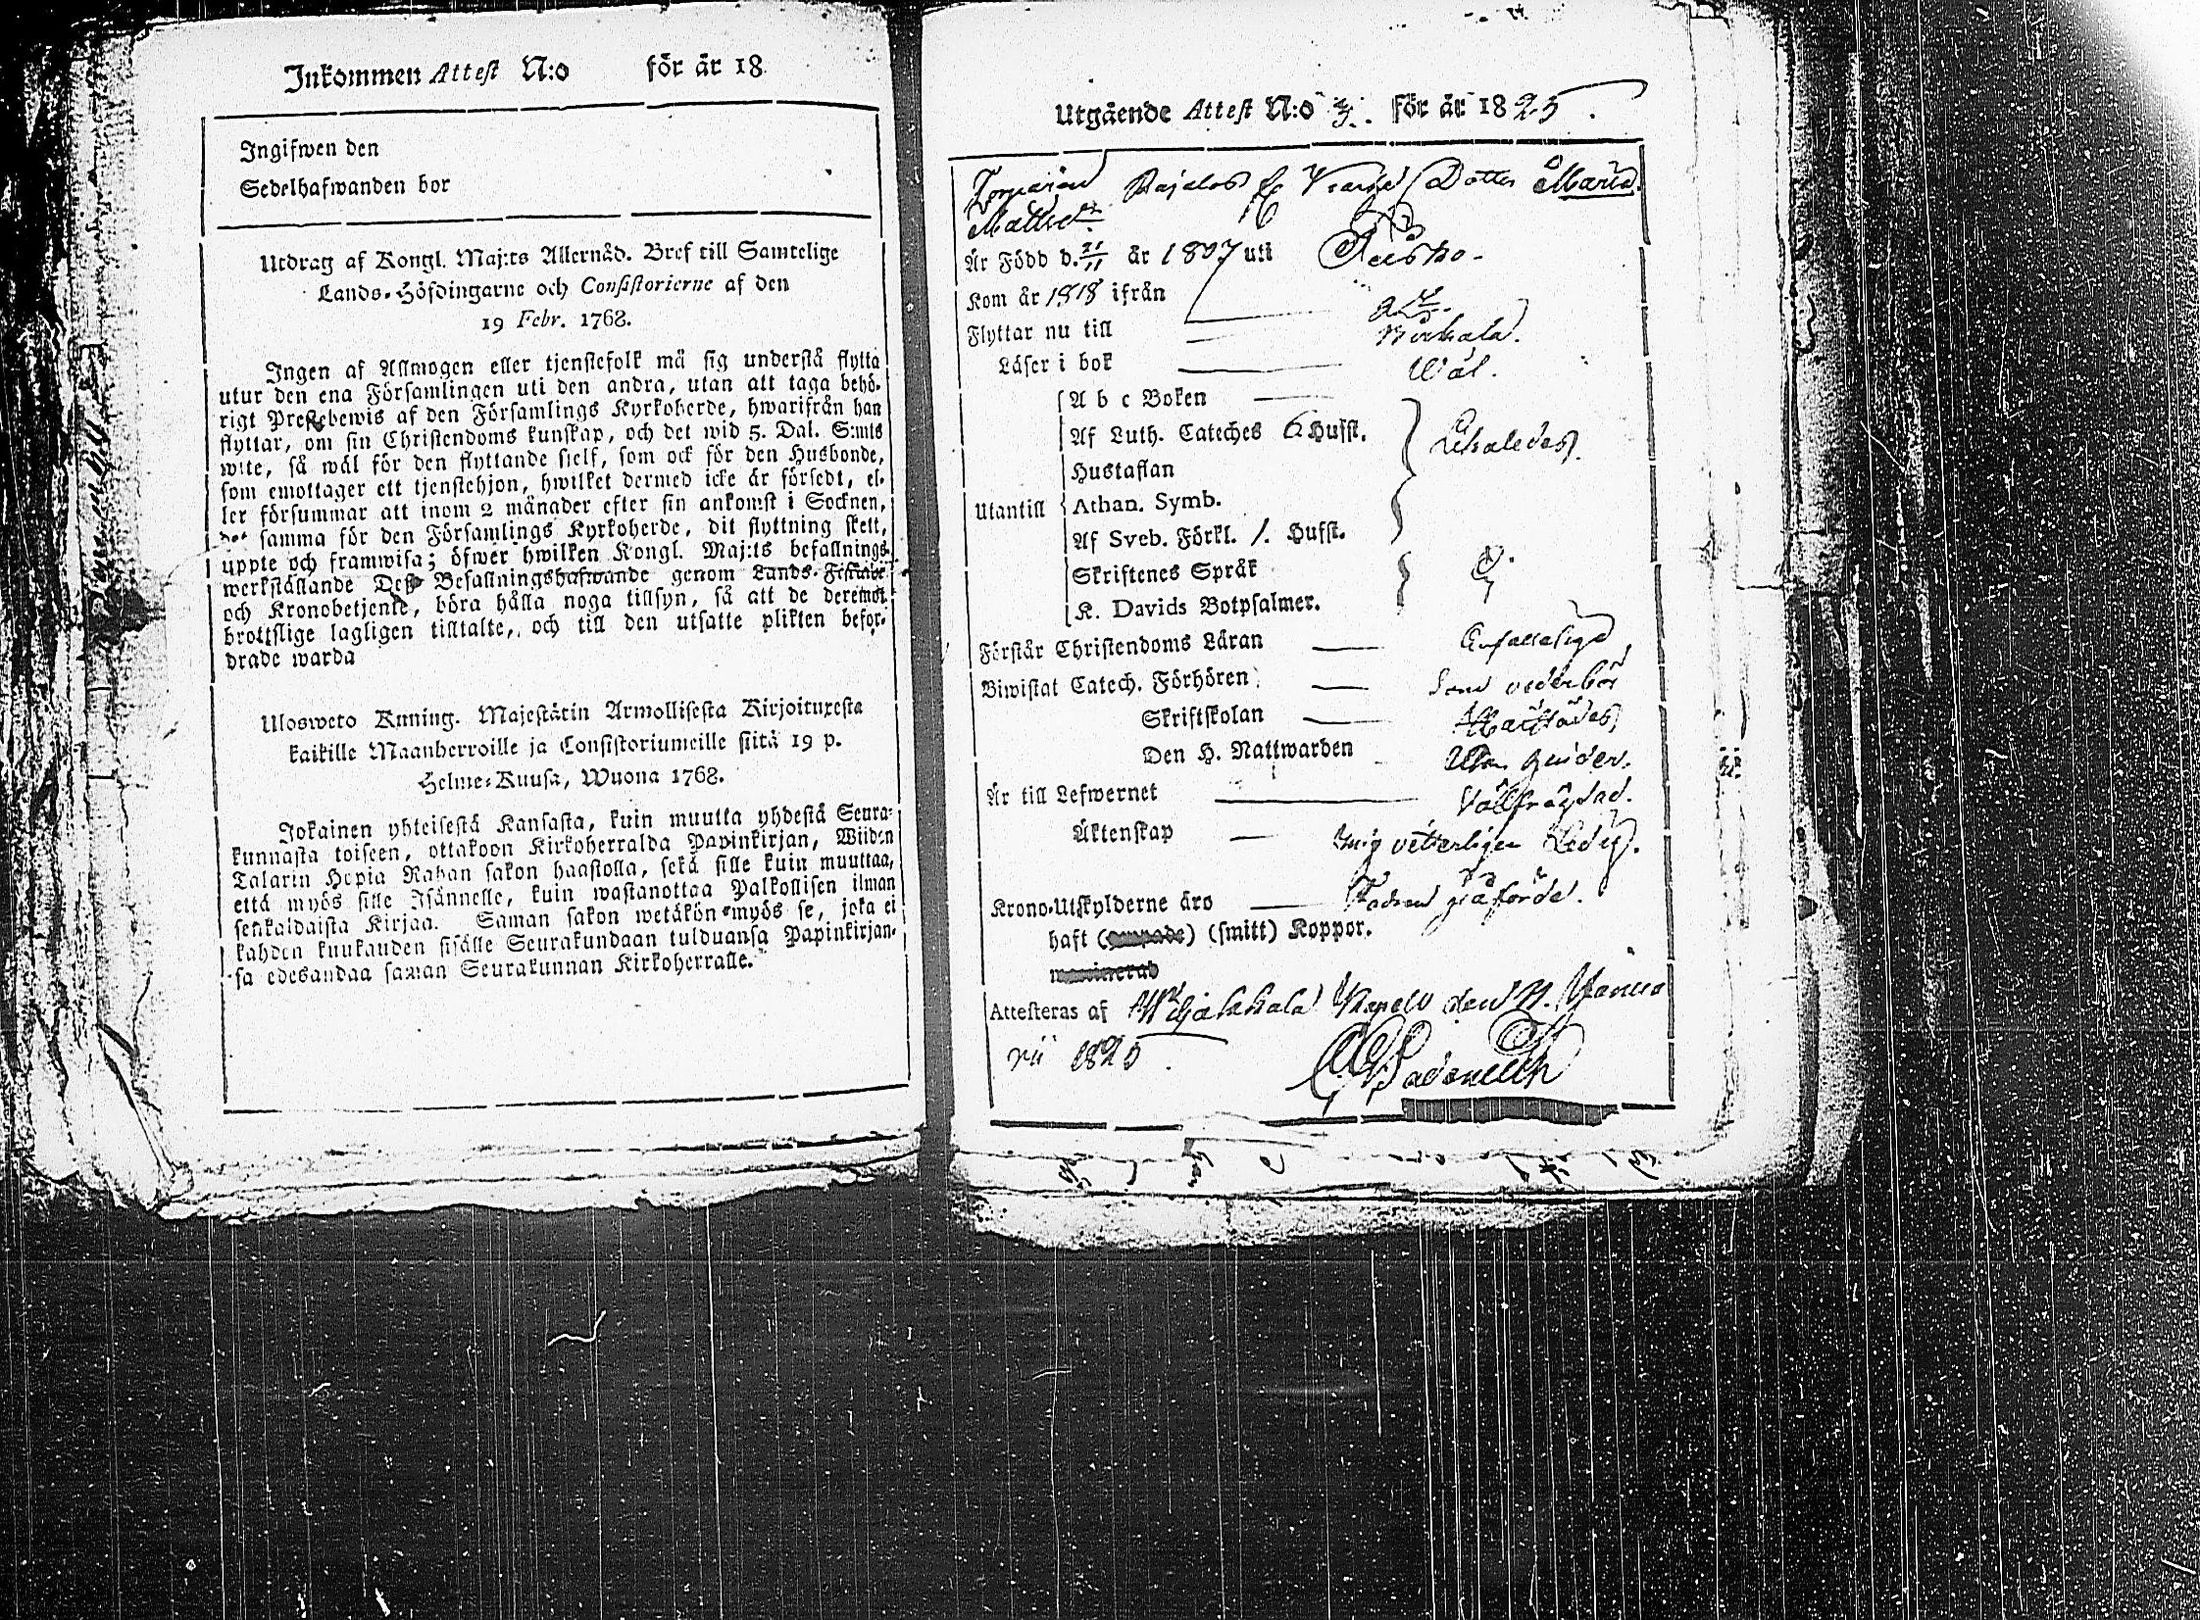 Inkommen Attest N:o för år 18
Ingifwen den
Sedelhafwanden bor
Utdrag af Kongl. Maj:ts Allernåd. Bref till Samtelige
Lands-Höfdingarne och Consistorierne af den
19 Febr. 1768.
Ingen af Allmogen eller tjenstefolk må sig understå flytta
utur den ena Församlingen uti den andra, utan att taga behö-
rigt Prestebewis af den Församlings Kyrkoherde, hwarifrån han
flyttar, om sin Christendoms kunskap, och det wid 5. Dal. S:mts
wite, så wäl för den flyttande sjelf, som ock för den Husbonde,
som emottager ett tjenstehjon, hwilket dermed icke är försedt, el-
ler försummar att inom 2 månader efter sin ankomst i Socknen,
det samma för den Församlings Kyrkoherde, dit flyttning skett,
uppte och framwisa; öfwer hwilken Kongl. Maj:ts befallnings
werkställande Dess Befallningshafwande genom Lands-Fiskaler
och Kronobetjente, böra hålla noga tillsyn, så att de deremot
brottslige lagligen tilltalte, och till den utsatte plikten befor-
drade warda
Ulosweto Kuning. Majestätin Armollisesta Kirjoituxesta
kaikille Maanherroille ja Consistoriumeille siitä 19 p.
Helme-Kuusa, Wuona 1768.
Jokainen yhteisestä Kansasta, kuin muutta yhdestä Seura-
kunnasta toiseen, ottakoon Kirkoherralda Papinkirjan, Wiiden
Talarin Hopia Rahan sakon haastolla, sekä sille kuin muuttaa,
että myös sille Isännelle, kuin wastanottaa Palkollisen ilman
senkaldaista Kirjaa. Saman sakon wetäkön myös se, joka ei
kahden kuukauden sisälle Seurakundaan tulduansa Papinkirjan-
sa edesandaa saman Seurakunnan Kirkoherralle.
Utgående Attest N:o 3. för år 1825.
Dotter Maria
Är Född d. 21/11 år 1807 uti Rusko.
Kom år 1818 ifrån
Flyttar nu till
Läser i bok Wäl.
A b c Boken
Af Luth. Cateches 6 Hufst.
Hustaflan
Utantill Athan. Symb.
Af Sveb. Förkl. 1. Hufst.
Skriftenes Språk
K. Davids Botpsalmer.
Förstår Christendoms Läran Enfaldeligt
Biwistat Catech. Förhören som vederbör
Skriftskolan
Den H. Nattwarden
Är till Lefwernet Wälfrägdad.
Äktenskap mig vetterligen Ledig.
Krono-Utskylderne äro
haft (smitt) Koppor.
Attesteras af Kapell den
rii 1825.